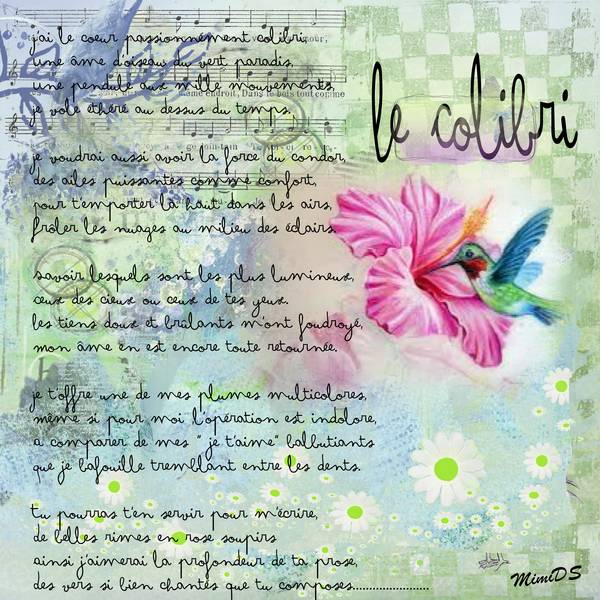 le colibri
j'ai le coeur passionnément colibri,
une âme d'oiseau du vert paradis,
une pendule aux mille mouvements,
je vole éthéré au dessus du temps,
je voudrai aussi avoir la force du condor,
des ailes puissantes comme confort,
pour t'emporter là haut dans les airs,
frôler les nuages au milieu des éclairs.
savoir lesquels sont les plus lumineux,
ceux des cieux ou ceux de tes yeux.
les tiens doux et brûlants m'ont foudroyé,
mon âme en est encore toute retournée.
je t'offre une de mes plumes multicolores,
même si pour moi l'opération est indolore,
a comparer de mes " je t'aime" balbutiants
que je bafouille tremblant entre les dents.
tu pourras t'en servir pour m'écrire,
de belles rimes en rose soupirs
ainsi j'aimerai la profondeur de ta prose,
des vers si bien chantés que tu composes....................
MimiDS